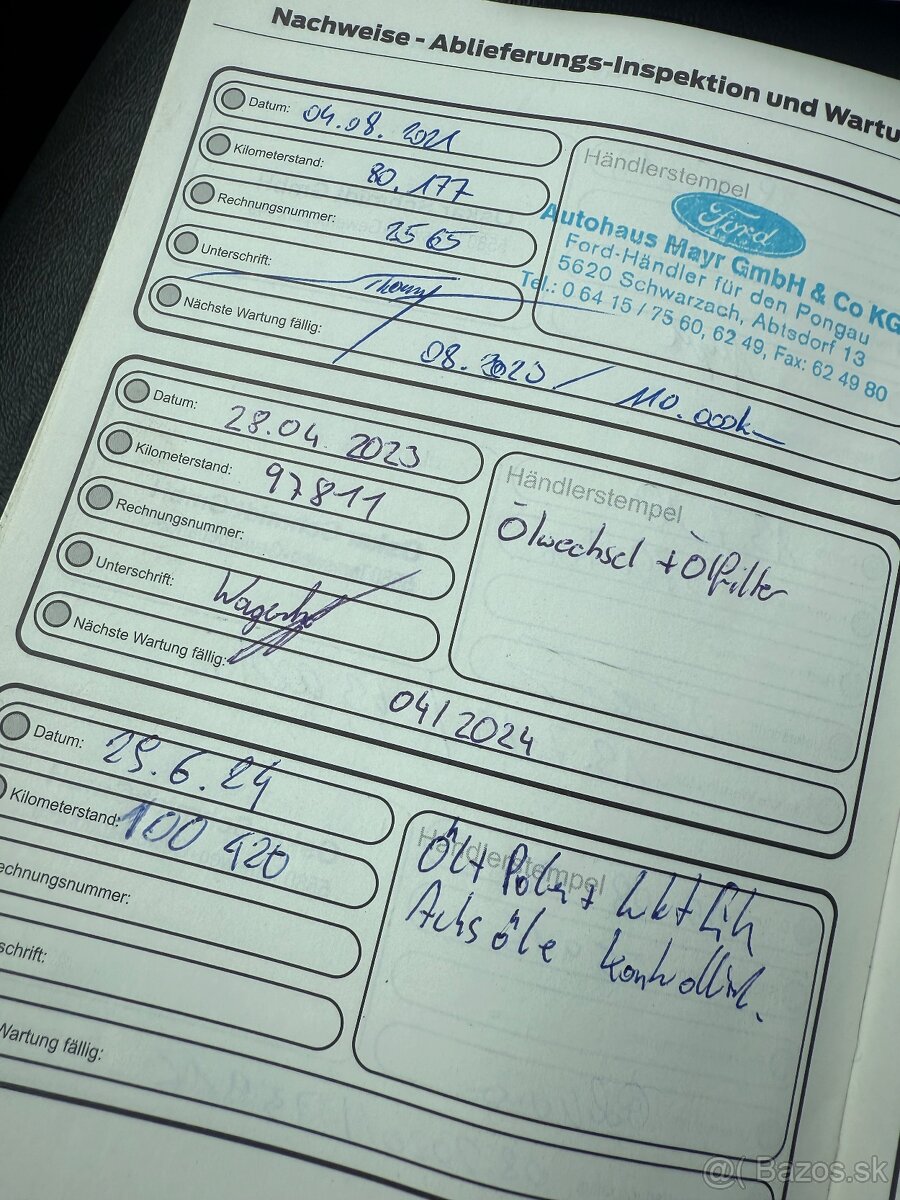 Nachweise - Ablieferungs-Inspektion und Wartu
Datum: 04.08.2021
Kilometerstand: 80.177
Rechnungsnummer: 2565
Unterschrift:
Nächste Wartung fällig: 08.2023 / 110.000km
Händlerstempel
Ford
Autohaus Mayr GmbH & Co KG
Ford-Händler für den Pongau
5620 Schwarzach, Abtsdorf 13
Tel.: 0 64 15 / 75 60, 62 49, Fax: 62 49 80
Datum: 28.04.2023
Kilometerstand: 97811
Rechnungsnummer:
Unterschrift:
Nächste Wartung fällig: 04/2024
Händlerstempel
Ölwechsel + Ölfilter
Datum: 29.6.24
Kilometerstand: 100 420
echnungsnummer:
schrift:
Wartung fällig:
Händlerstempel
Öl +
Achsöle kontrolliert.
@( Bazos.sk